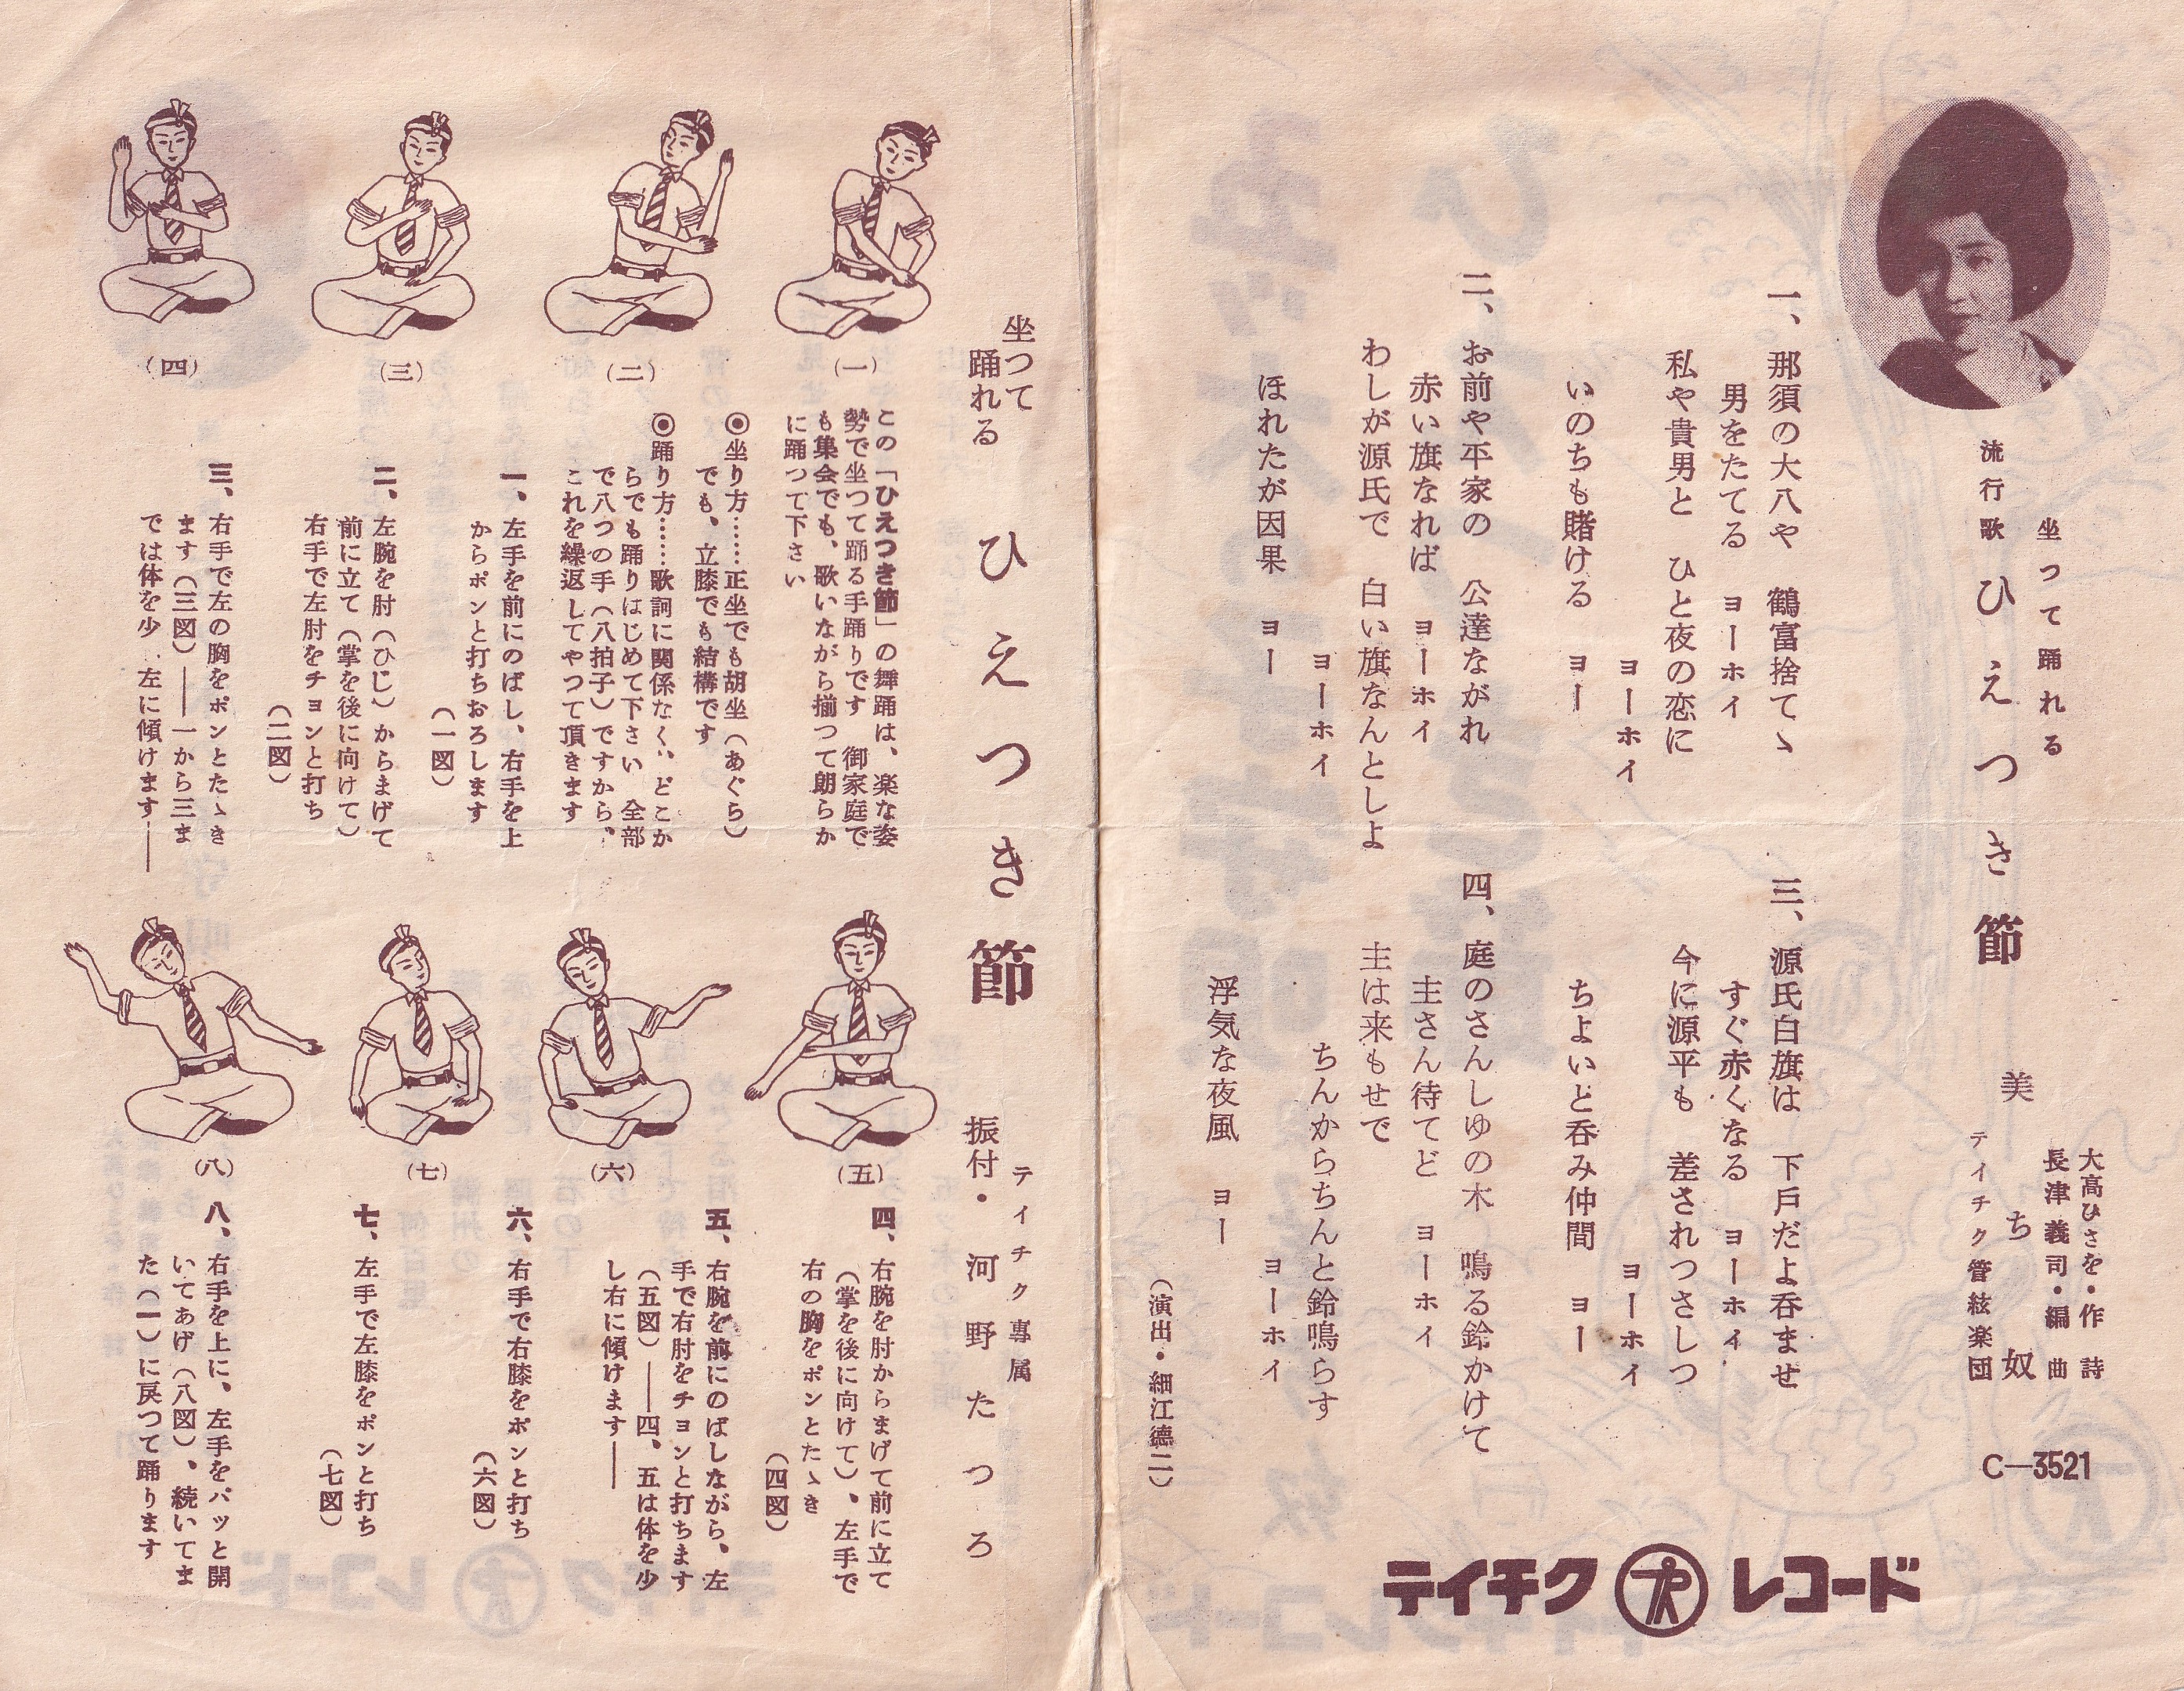 坐つて踊れる
流行歌 ひえつき節
大高ひさを・作詩
長津義司・編曲
美ち奴
テイチク管絃楽団
C—3521
一、那須の大八や 鶴富捨てゝ
男をたてる ヨーホイ
私や貴男と ひと夜の恋に
ヨーホイ
いのちも賭ける ヨー
二、お前や平家の 公達ながれ
赤い旗なれば ヨーホイ
わしが源氏で 白い旗なんとしよ
ヨーホイ
ほれたが因果 ヨー
三、源氏白旗は 下戸だよ呑ませ
すぐ赤くなる ヨーホイ
今に源平も 差されつさしつ
ヨーホイ
ちよいと呑み仲間 ヨー
四、庭のさんしゆの木 鳴る鈴かけて
主さん待てど ヨーホイ
主は来もせで
ちんからちんと鈴鳴らす
ヨーホイ
浮気な夜風 ヨー
(演出・細江徳二)
テイチクレコード
坐つて
踊れる
ひえつき節
テイチク専属
振付・河野たつろ
この「ひえつき節」の舞踊は、楽な姿
勢で坐つて踊る手踊りです 御家庭で
も集会でも、歌いながら揃つて朗らか
に踊つて下さい
◉坐り方……正坐でも胡坐(あぐら)
でも、立膝でも結構です
◉踊り方……歌詞に関係なく、どこか
らでも踊りはじめて下さい 全部
で八つの手(八拍子)ですから、
これを繰返してやつて頂きます
一、左手を前にのばし、右手を上
からポンと打ちおろします
(一図)
二、左腕を肘(ひじ)からまげて
前に立て(掌を後に向けて)
右手で左肘をチョンと打ち
(二図)
三、右手で左の胸をポンとたゝき
ます(三図)——一から三ま
では体を少し左に傾けます——
(一)
(二)
(三)
(四)
四、右腕を肘からまげて前に立て
(掌を後に向けて)、左手で
右の胸をポンとたゝき
(四図)
五、右腕を前にのばしながら、左
手で右肘をチョンと打ちます
(五図)——四、五は体を少
し右に傾けます——
六、右手で右膝をポンと打ち
(六図)
七、左手で左膝をポンと打ち
(七図)
八、右手を上に、左手をパッと開
いてあげ(八図)、続いてま
た(一)に戻つて踊ります
(五)
(六)
(七)
(八)